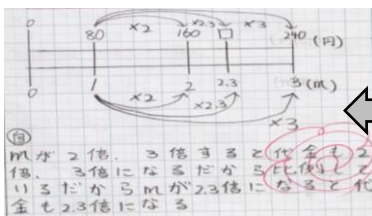 ×2 ×2.3 ×3
0 80 160 □ 240 (円)
0 1 2 2.3 3 (m)
×2 ×2.3
×3
自
mが2倍、3倍すると代金も2
倍、3倍になるだから比例して
いるだからmが2.3倍になると代
金も2.3倍になる